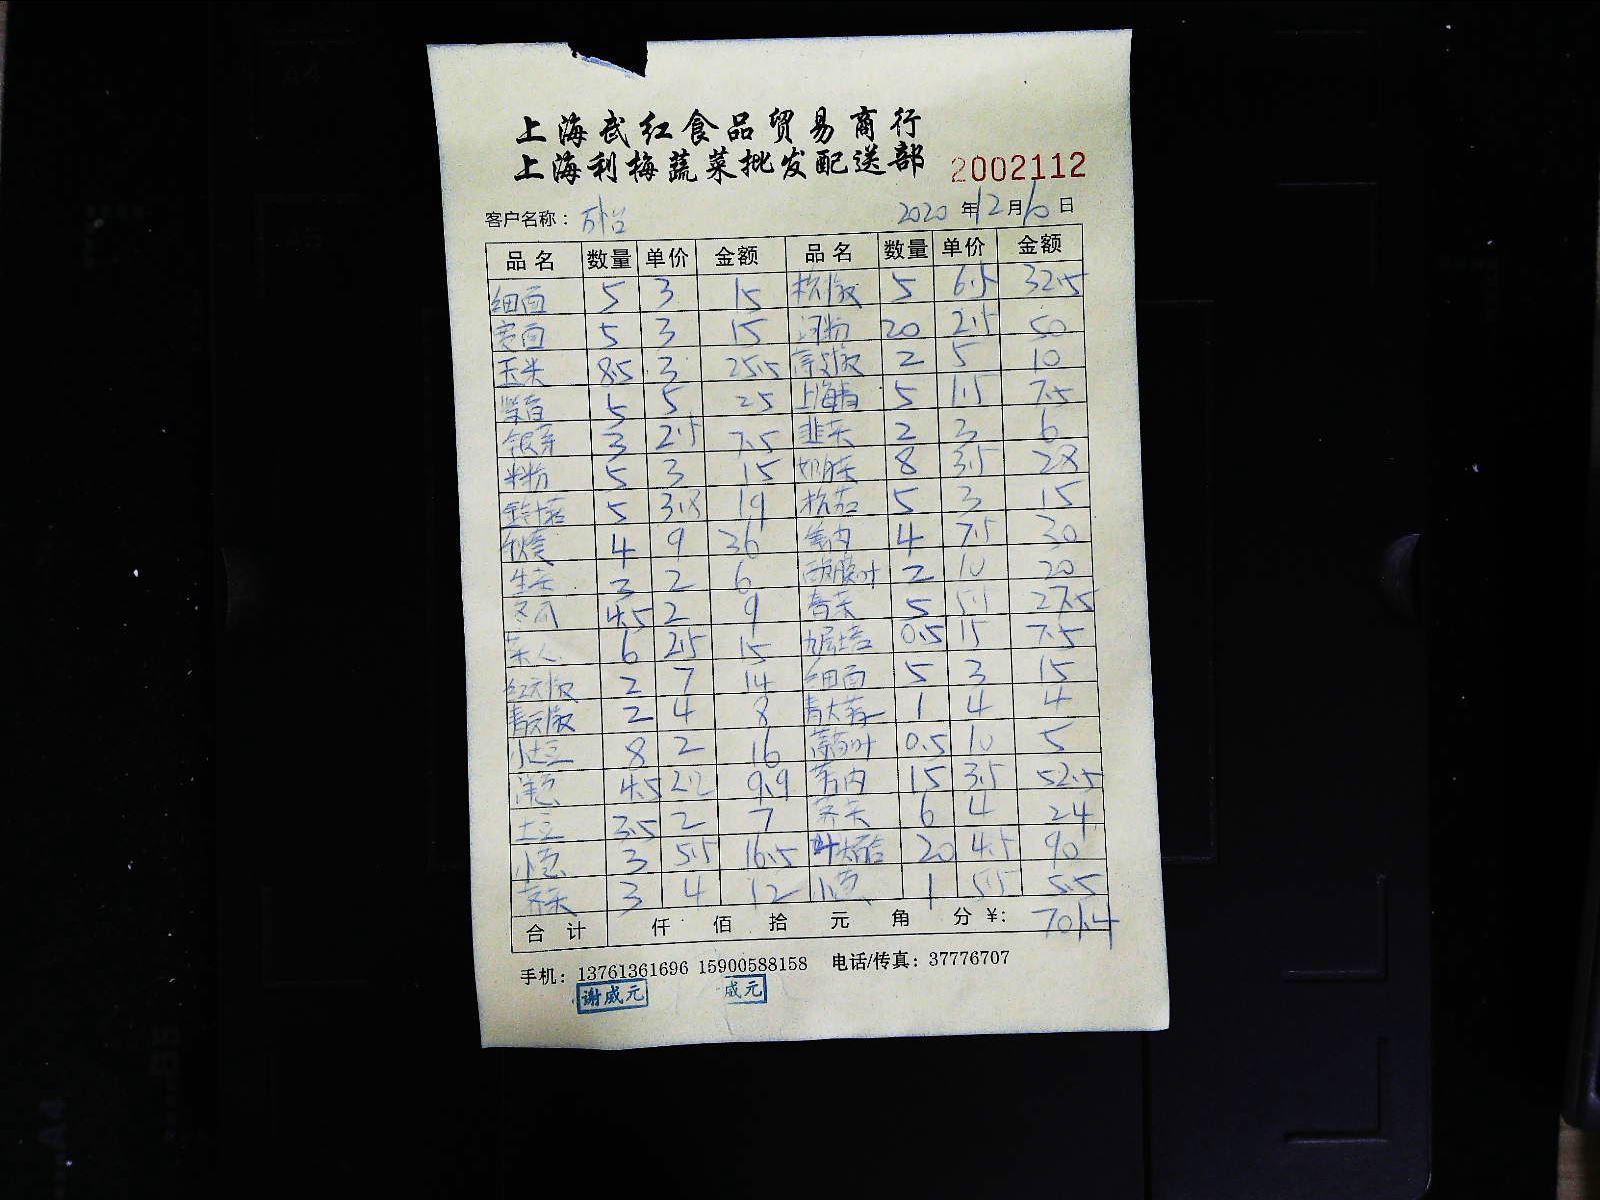 上海武红食品贸易商行
上海利梅蔬菜批发配送部 2002112
客户名称： 2020年12月10日
品名 数量 单价 金额 品名 数量 单价 金额
细面 5 3 15 杭椒 5 6.5 32.5
宽面 5 3 15 河粉 20 2.5 50
玉米 8.5 3 25.5 2 5 10
5 5 25 上海青 5 1.5 7.5
银芽 3 2.5 7.5 韭菜 2 3 6
米粉 5 3 15 奶白菜 8 3.5 28
金针菇 5 3.8 19 杭茄 5 3 15
4 9 36 4 7.5 30
生菜 3 2 6 2 10 20
冬瓜 4.5 2 9 5 5.5 27.5
6 2.5 15 0.5 15 7.5
红尖椒 2 7 14 细面 5 3 15
青尖椒 2 4 8 1 4 4
小土豆 8 2 16 0.5 10 5
洋葱 4.5 2.2 9.9 15 3.5 52.5
土豆 3.5 2 7 6 4 24
小葱 3 5.5 16.5 20 4.5 90
3 4 12 小葱 1 5.5 5.5
合计 仟 佰 拾 元 角 分 ¥: 701.4
手机：13761361696 15900588158 电话/传真：37776707
谢威元 威元